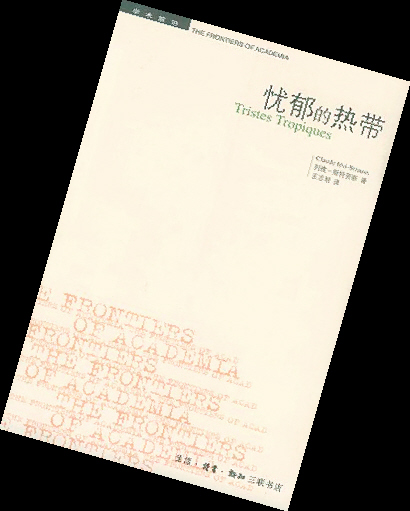 学术前沿
THE FRONTIERS OF ACADEMIA
忧郁的热带
Tristes Tropiques
列维-斯特劳斯 著
王志明 译
E FRONTIERS
OF ACADEMIA
THE FRONTIERS
OF ACADEMIA
THE FRONTIERS
OF ACADEMIA
THE FRONTIERS
OF ACAD
FRONTIERS
生活·读书·新知三联书店